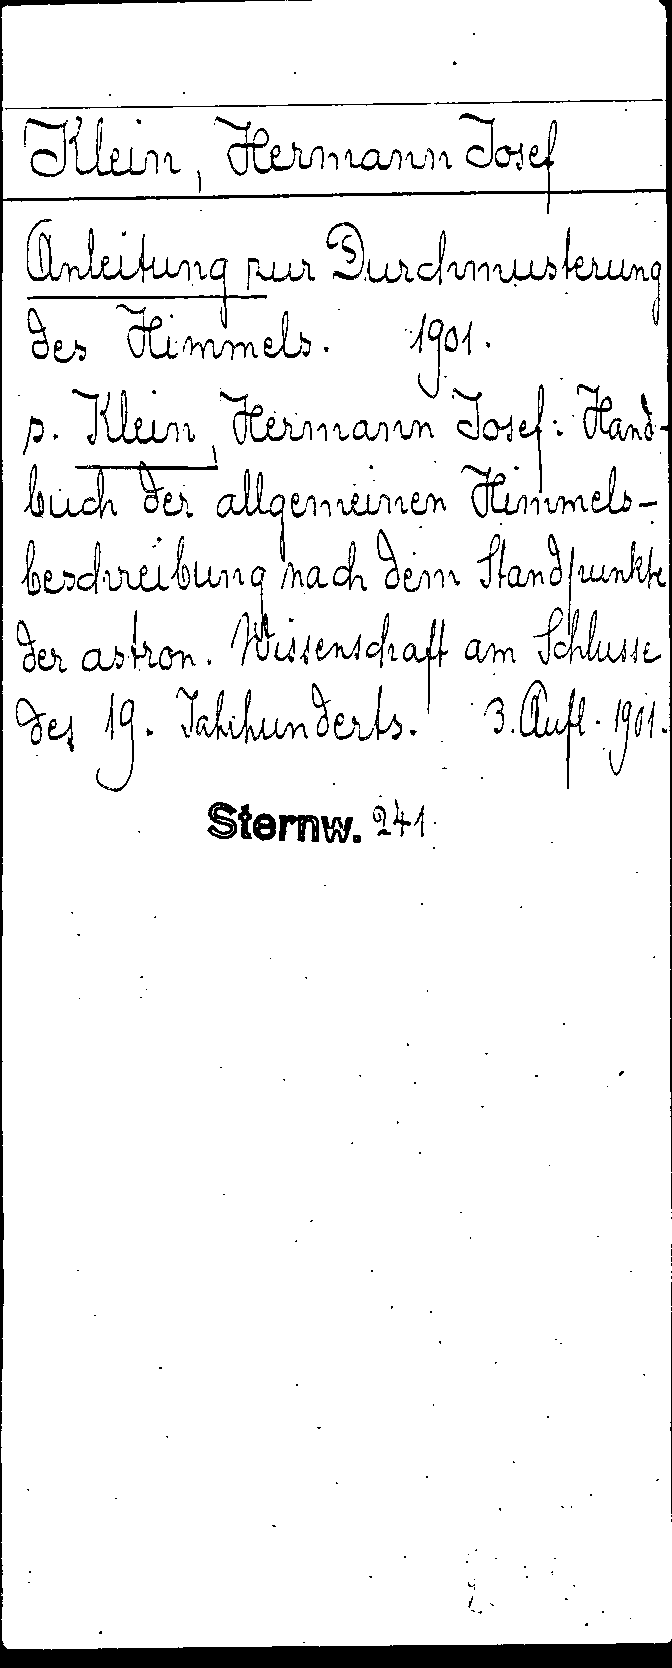 Klein, Hermann Josef
Anleitung zur Durchmusterung
des Himmels. 1901.
s. Klein, Hermann Josef: Hand-
buch der allgemeinen Himmels-
beschreibung nach dem Standpunkte
der astron. Wissenschaft am Schlusse
des 19. Jahrhunderts. 3. Aufl. 1901.
Sternw. 241.